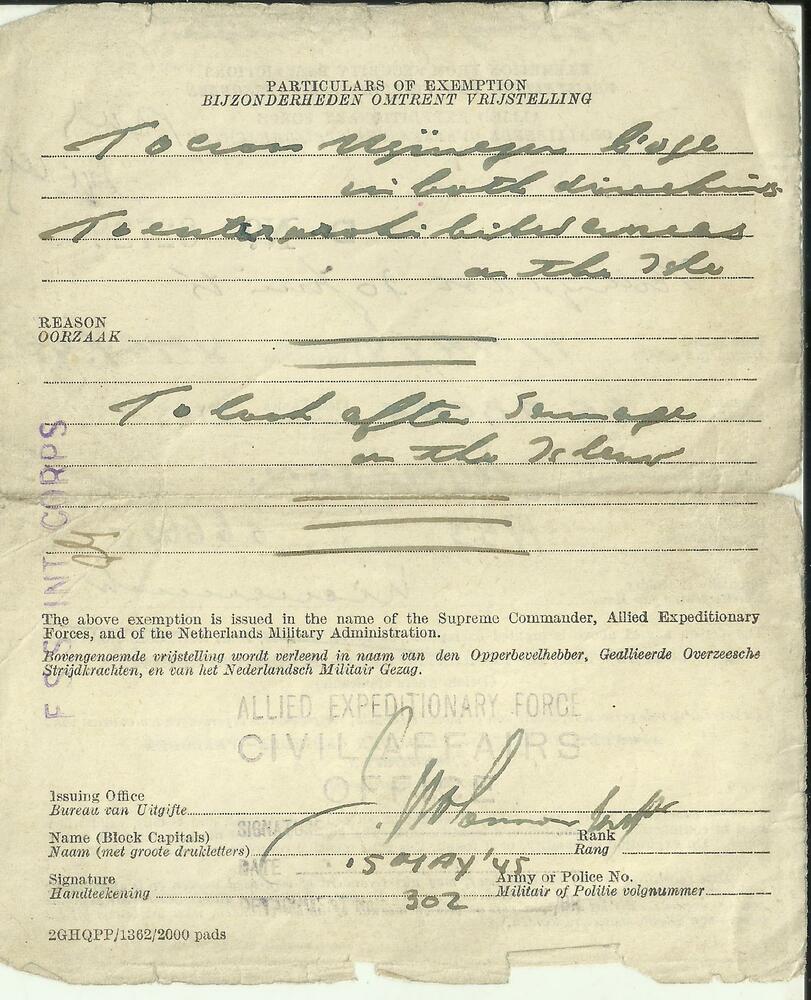 PARTICULARS OF EXEMPTION
BIJZONDERHEDEN OMTRENT VRIJSTELLING
To cross Nijmegen
in both directions
To enter prohibited areas
on the Isle
REASON
OORZAAK
To look after
on the Island
F.S.S. INT CORPS
The above exemption is issued in the name of the Supreme Commander, Allied Expeditionary
Forces, and of the Netherlands Military Administration.
Bovengenoemde vrijstelling wordt verleend in naam van den Opperbevelhebber, Geallieerde Overzeesche
Strijdkrachten, en van het Nederlandsch Militair Gezag.
ALLIED EXPEDITIONARY FORCE
CIVIL AFFAIRS
OFFICE
Issuing Office
Bureau van Uitgifte
Name (Block Capitals)
Naam (met groote drukletters)
SIGNATURE
Rank
Rang
DATE
15 MAY '45
Signature
Handteekening
302
Army or Police No.
Militair of Politie volgnummer
2GHQPP/1362/2000 pads